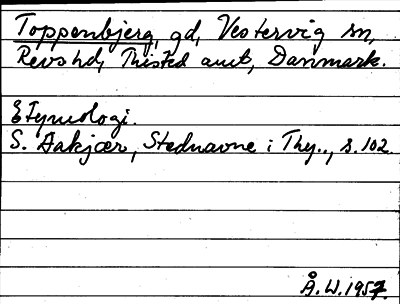 Toppenbjerg, gd, Vestervig sn,
Refshd, Thisted amt, Danmark.
Etymologi.
S. Aakjær, Stednavne i Thy.., s. 102
Å.W. 1957.